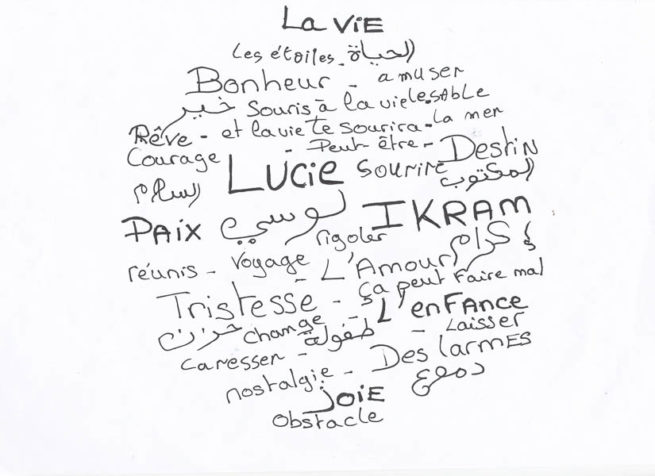 La ViE
Les étoiles - الحياة
Bonheur - amuser
خير Souris à la vie le sable
Rêve - et la vie te sourira - la mer
Courage - Peut être - Destin
LUCiE sourire المكتوب
السلام
PAiX لوسي IKRAM
rigoler إكرام
réunis - Voyage - L'Amour
Tristesse - ça peut faire mal
حزن change - L'enFAnce
طفولة - Laisser
caresser - Des larmES
nostalgie - دموع
JOiE
obstacle